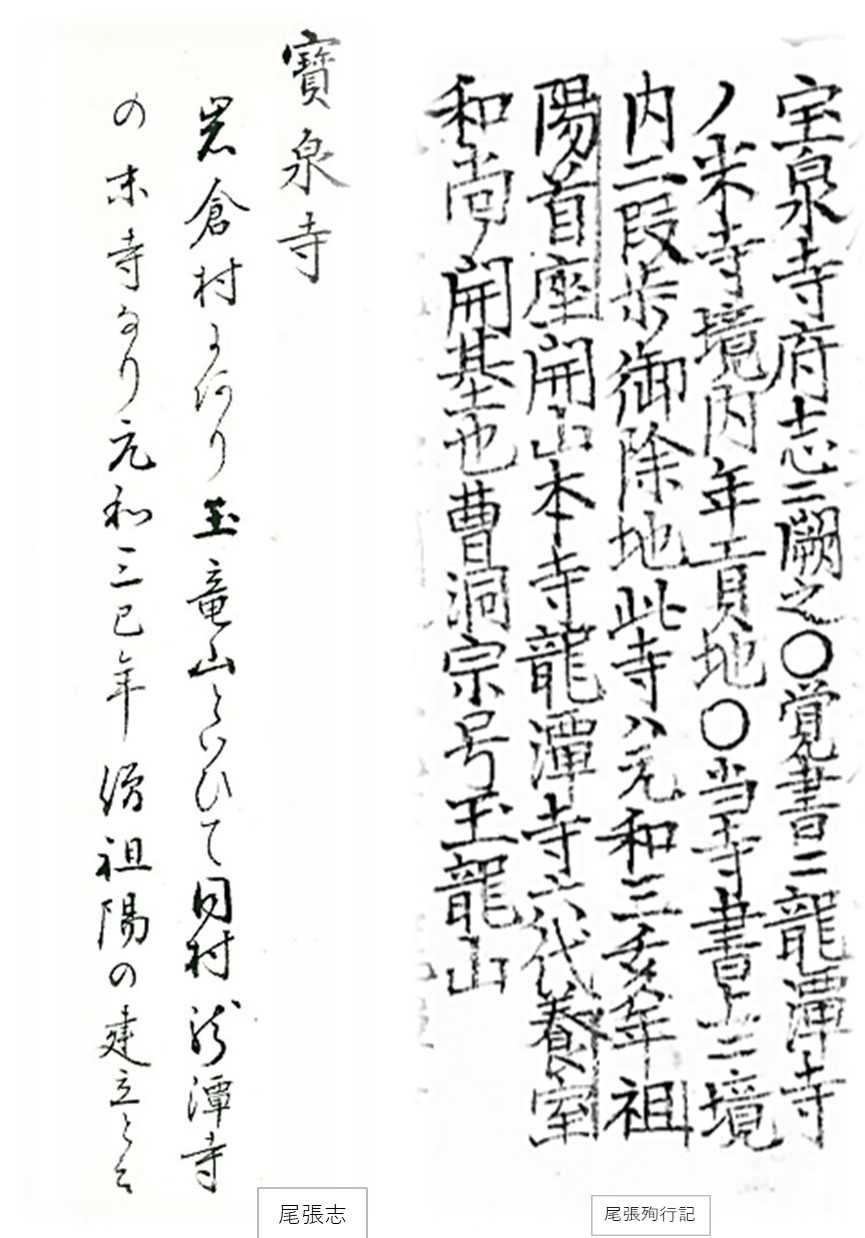 宝泉寺府志ニ闕之〇覚書ニ龍潭寺
ノ末寺境内年貢地〇当寺書上ニ境
内二段歩御除地此寺ハ元和三亥年祖
陽首座開山本寺龍潭寺六代養室
和尚ノ開基也曹洞宗号玉龍山
寳泉寺
岩倉村にあり玉竜山といひて同村龍潭寺
の末寺なり元和三巳年僧祖陽の建立と云
尾張志
尾張殉行記